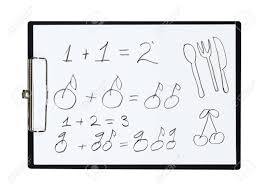 1 + 1 = 2
+ =
1 + 2 = 3
+ =